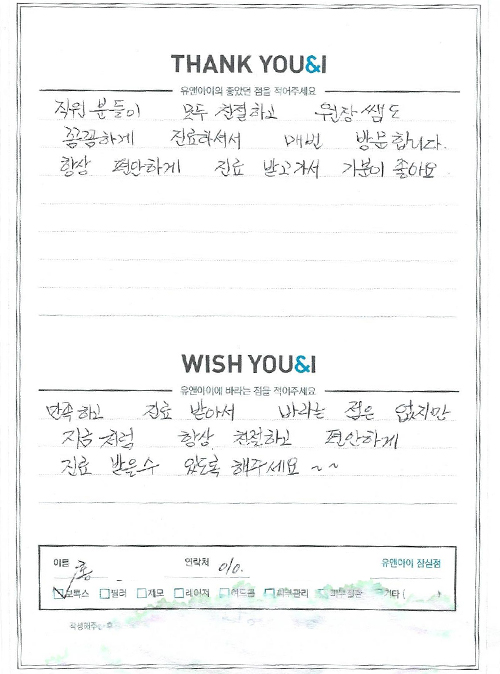 THANK YOU&I
유앤아이의 좋았던 점을 적어주세요
직원분들이 모두 친절하고 원장쌤도
꼼꼼하게 진료하셔서 매번 방문합니다.
항상 편안하게 진료 받고가서 기분이 좋아요
WISH YOU&I
유앤아이에 바라는 점을 적어주세요
만족하고 진료 받아서 바라는 점은 없지만
지금처럼 항상 친절하고 편안하게
진료 받을수 있도록 해주세요 ~ ~
이름 홍 연락처 010. 유앤아이 잠실점
보톡스 필러 제모 레이저 피부관리 기타 (
작성해주